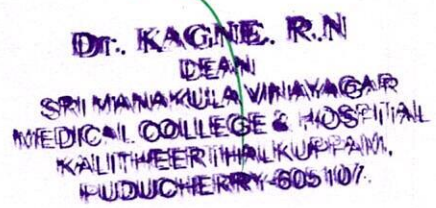 Dr. KAGNE. R.N
DEAN
SRI MANAKULA VINAYAGAR
MEDICAL COLLEGE & HOSPITAL
KALITHEERTHALKUPPAM,
PUDUCHERRY-605107.